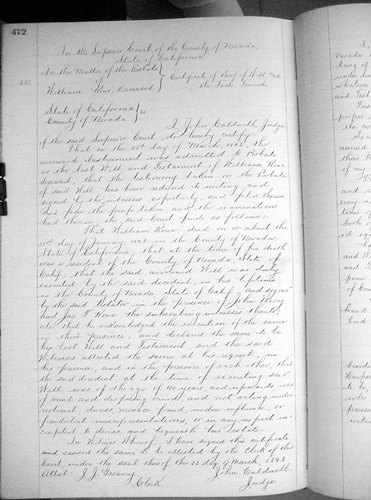 472
In the Superior Court of the County of Nevada,
State of California
In the Matter of the Estate
William Rowe, Deceased
Certificate of Proof of Will, and
the Facts Found
State of California
County of Nevada } ss.
I, John Caldwell, Judge
of the said Superior Court, do hereby certify
That on the 23d day of March, 1883, the
annexed instrument was admitted to Probate
as the last Will and Testament of William Rowe
deceased, that the testimony taken in the Probate
of said Will has been reduced to writing and
signed by the witnesses respectively and filed therein
and from the proofs taken and the examination
had therein the said Court finds as follows:
That William Rowe died on or about the
day of January 1883 in the County of Nevada
State of California, that at the time of his death
was a resident of the County of Nevada State of
Calif, that the said annexed Will was duly
executed by the said decedent, in his lifetime
in the County of Nevada State of Calif, and signed
by the said Testator in the presence of John
and Jas. T. Rowe the subscribing witnesses thereto,
also that he acknowledged the execution of the same
in their presence, and declared the same to be
his last Will and Testament, and the said
Witnesses attested the same at his request, in
his presence, and in the presence of each other, that
the said decedent at the time of executing said
Will was of the age of 18 years and upwards was
of sound and disposing mind, and not acting under
restraint, duress, menace, fraud, undue influence, or
fraudulent misrepresentations, or in any respect in-
competent to devise and bequeath his Estate.
In Witness Whereof, I have signed this certificate
and caused the same to be attested by the Clerk of this
Court, under the seal thereof this 23 day of March, 1883
Attest J. J.
John Caldwell
Clerk
Judge